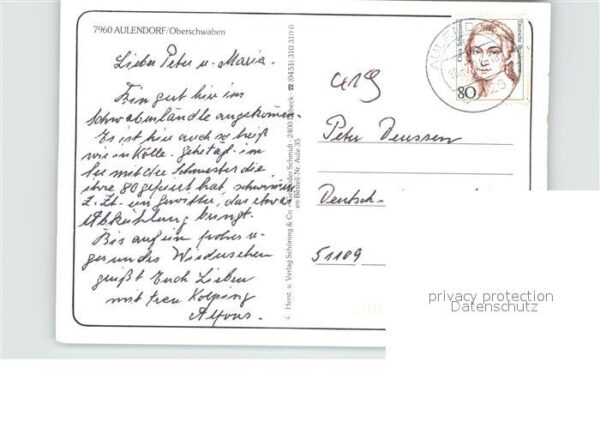 7960 AULENDORF/Oberschwaben
Lieber Peter u. Maria.
Bin gut hier im
Schwabenländle angekommen.
Es ist hier auch so heiß
wie in Kölle.
im
See mit der Schwester die
ihre 80 gefeiert hat, schwimmen
z. Zt. ein Gewitter, das etwas
Abkühlung bringt.
Bis auf ein frohes u-
gesundes Wiedersehen
grüßt Euch Lieben
mit treu Kolping
Alfons.
© Herst. u. Verlag Schöning & Co Schmidt · 2400 Lübeck · ☎ (0451) 310 31 0
Bestell Nr. Aule 35
419
Clara Schumann
Deutsche Bundespost
80
AULEND
Peter Deussen
Deutsch-
51109
privacy protection
Datenschutz